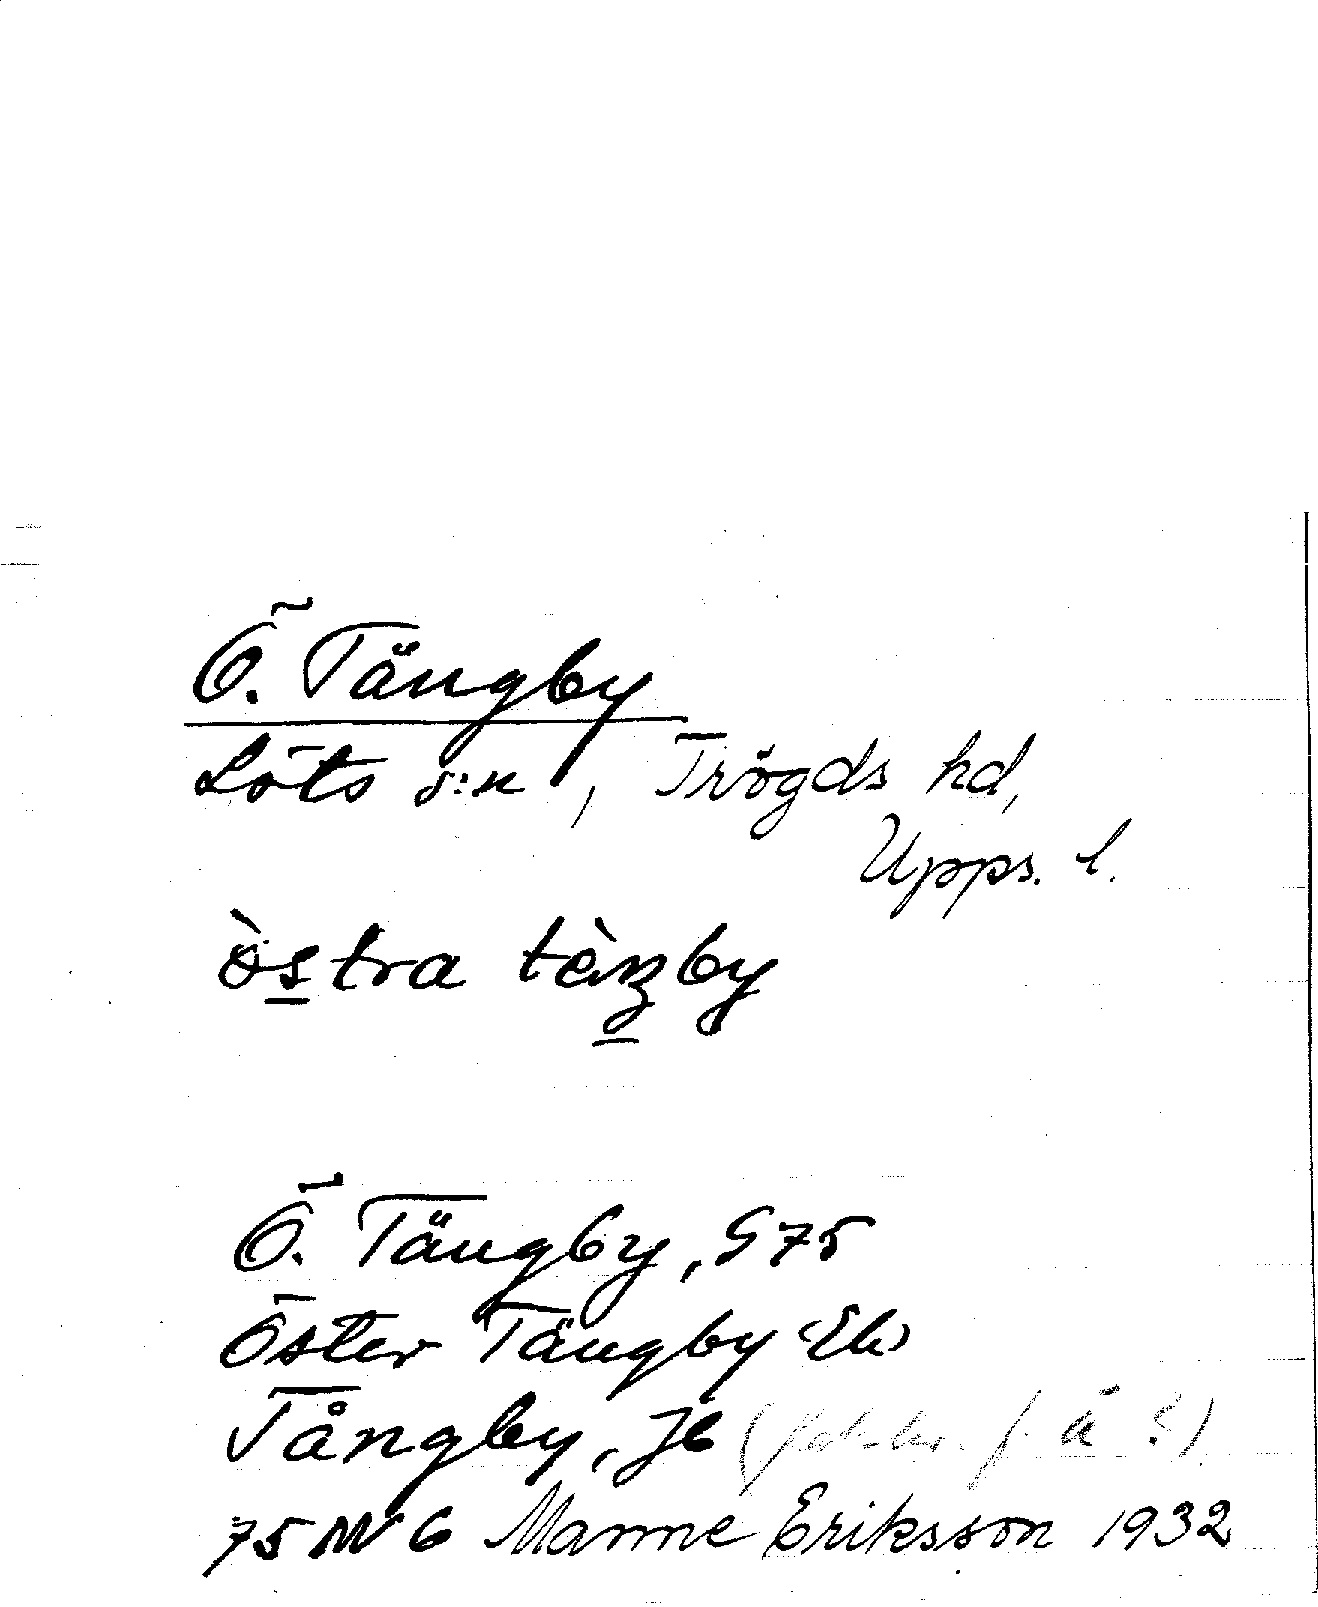 Ö. Tängby
Löts s:n, Trögds hd,
Upps. l.
ò̈stra tä̀ŋby
Ö. Tängby, G 75
Öster Tängby Ek
Tångby, Jb (f. ä ?)
75 NV 6 Manne Eriksson 1932